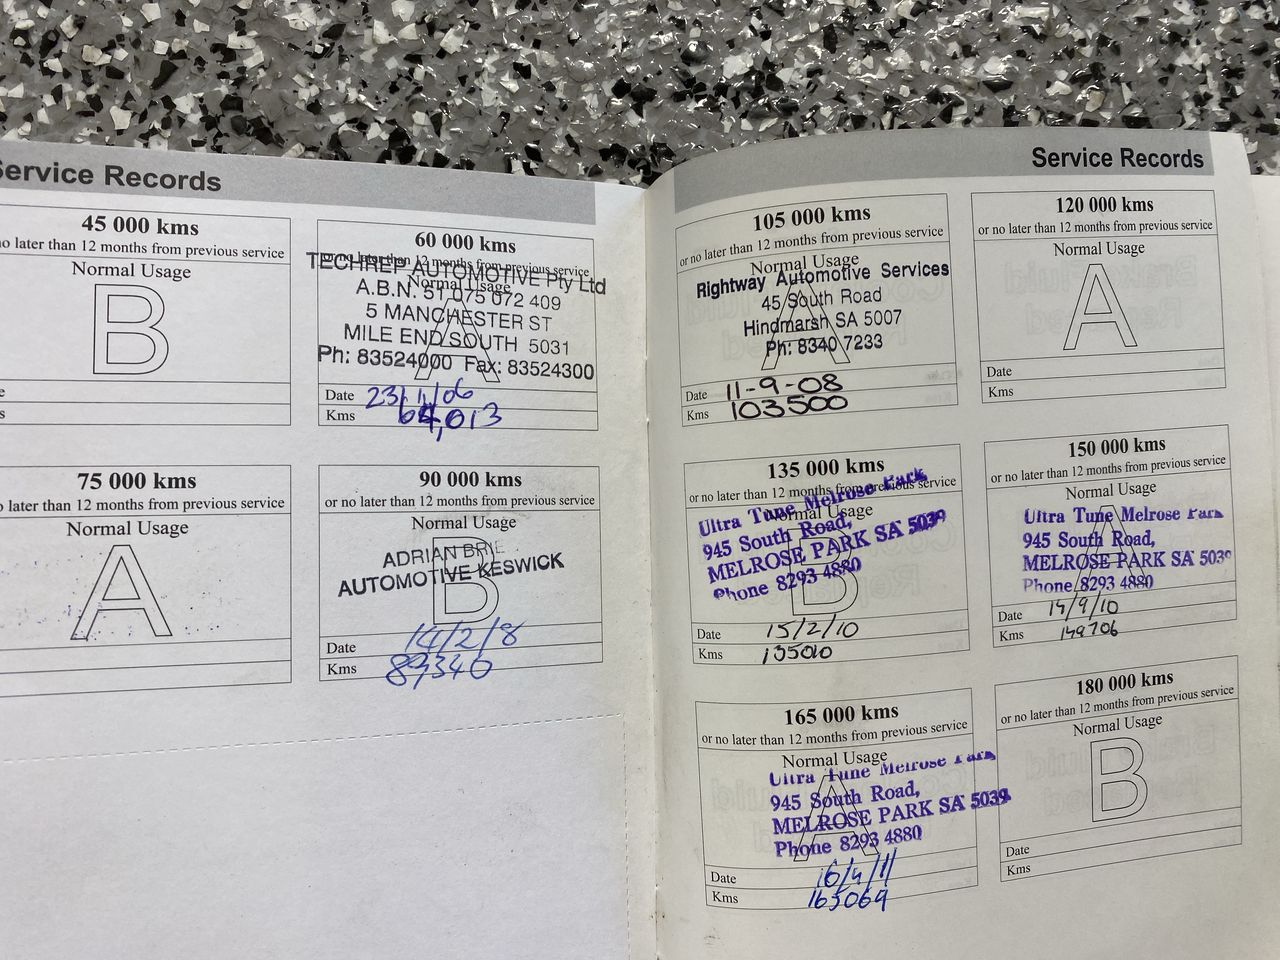 Service Records
45 000 kms
no later than 12 months from previous service
Normal Usage
B
60 000 kms
or no later than 12 months from previous service
Normal Usage
A
TECHREP AUTOMOTIVE Pty Ltd
A.B.N. 51 075 072 409
5 MANCHESTER ST
MILE END SOUTH 5031
Ph: 83524000 Fax: 83524300
Date
Kms 64,013
75 000 kms
no later than 12 months from previous service
Normal Usage
A
90 000 kms
or no later than 12 months from previous service
Normal Usage
B
ADRIAN
AUTOMOTIVE KESWICK
Date 14/2/8
Kms 89340
Service Records
105 000 kms
or no later than 12 months from previous service
Normal Usage
A
Rightway Automotive Services
45 South Road
Hindmarsh SA 5007
Ph: 8340 7233
Date 11-9-08
Kms 103500
120 000 kms
or no later than 12 months from previous service
Normal Usage
A
Date
Kms
135 000 kms
or no later than 12 months from previous service
Normal Usage
B
Ultra Tune Melrose Park
945 South Road,
MELROSE PARK SA 5039
Phone 8293 4880
Date 15/2/10
Kms 135010
150 000 kms
or no later than 12 months from previous service
Normal Usage
A
Ultra Tune Melrose Park
945 South Road,
MELROSE PARK SA 5039
Phone 8293 4880
Date 14/9/10
Kms 149706
165 000 kms
or no later than 12 months from previous service
Normal Usage
A
Ultra Tune Melrose Park
945 South Road,
MELROSE PARK SA 5039
Phone 8293 4880
Date 16/4/11
Kms 165069
180 000 kms
or no later than 12 months from previous service
Normal Usage
B
Date
Kms